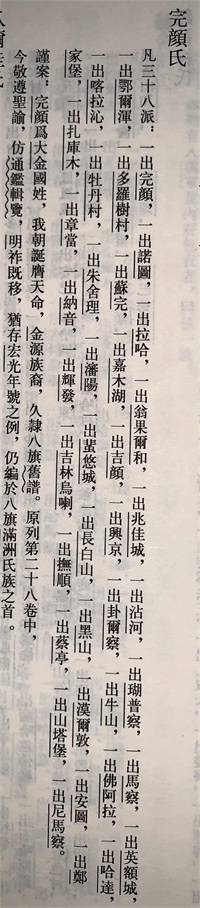 完顔氏
凡三十八派：一出完顔，一出諾圖，一出拉哈，一出翁果爾和，一出兆佳城，一出沾河，一出瑚普察，一出馬察，一出英額城，
一出鄂爾渾，一出多羅樹村，一出蘇完，一出嘉木湖，一出吉顔，一出興京，一出卦爾察，一出牛山，一出佛阿拉，一出哈達，
一出喀拉沁，一出牡丹村，一出朱舍理，一出瀋陽，一出蜚悠城，一出長白山，一出黑山，一出漠爾敦，一出安圖，一出鄭
家堡，一出扎庫木，一出章當，一出納音，一出輝發，一出吉林烏喇，一出撫順，一出蔡亭，一出山塔堡，一出尼馬察。
謹案：完顔爲大金國姓，我朝誕膺天命，金源族裔，久隸八旗舊譜。原列第二十八卷中，
今敬遵聖諭，仿通鑑輯覽，明祚既移，猶存宏光年號之例，仍編於八旗滿洲氏族之首。